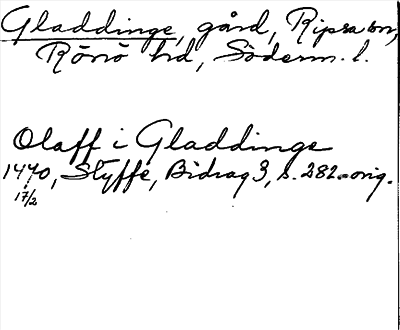 Gladdinge, gård, Ripsa sn,
Rönö hd, Söderm. l.
Olaff i Gladdinge
1470, Styffe, Bidrag 3, s. 282 - orig.
17/2